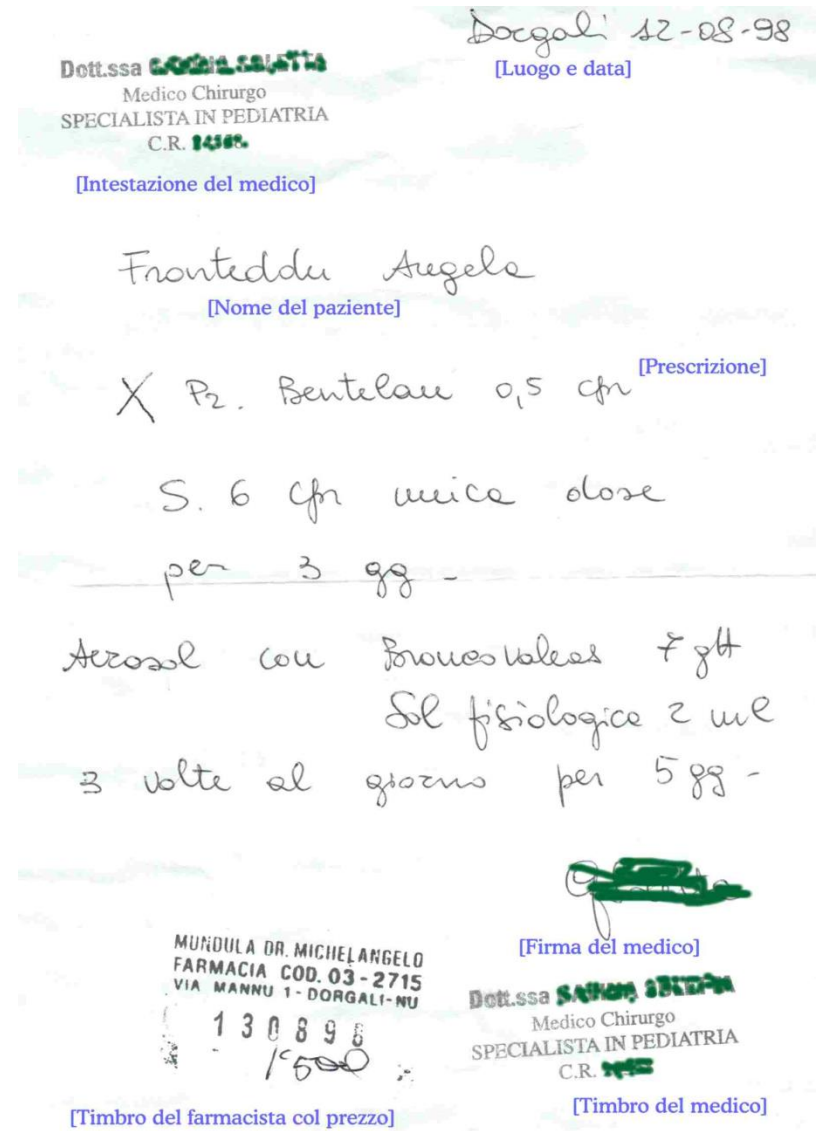 Dorgali 12-08-98
[Luogo e data]
Dott.ssa
Medico Chirurgo
SPECIALISTA IN PEDIATRIA
C.R.
[Intestazione del medico]
Fronteddu Angela
[Nome del paziente]
X P2. Bentelan 0,5 cpr
[Prescrizione]
S. 6 cpr unica dose
per 3 gg -
Aerosol con Broncovaleas 7 gtt
Sol fisiologica 2 ml
3 volte al giorno per 5 gg -
[Firma del medico]
MUNDULA DR. MICHELANGELO
FARMACIA COD. 03-2715
VIA MANNU 1 - DORGALI-NU
1500
[Timbro del farmacista col prezzo]
Dott.ssa
Medico Chirurgo
SPECIALISTA IN PEDIATRIA
C.R.
[Timbro del medico]